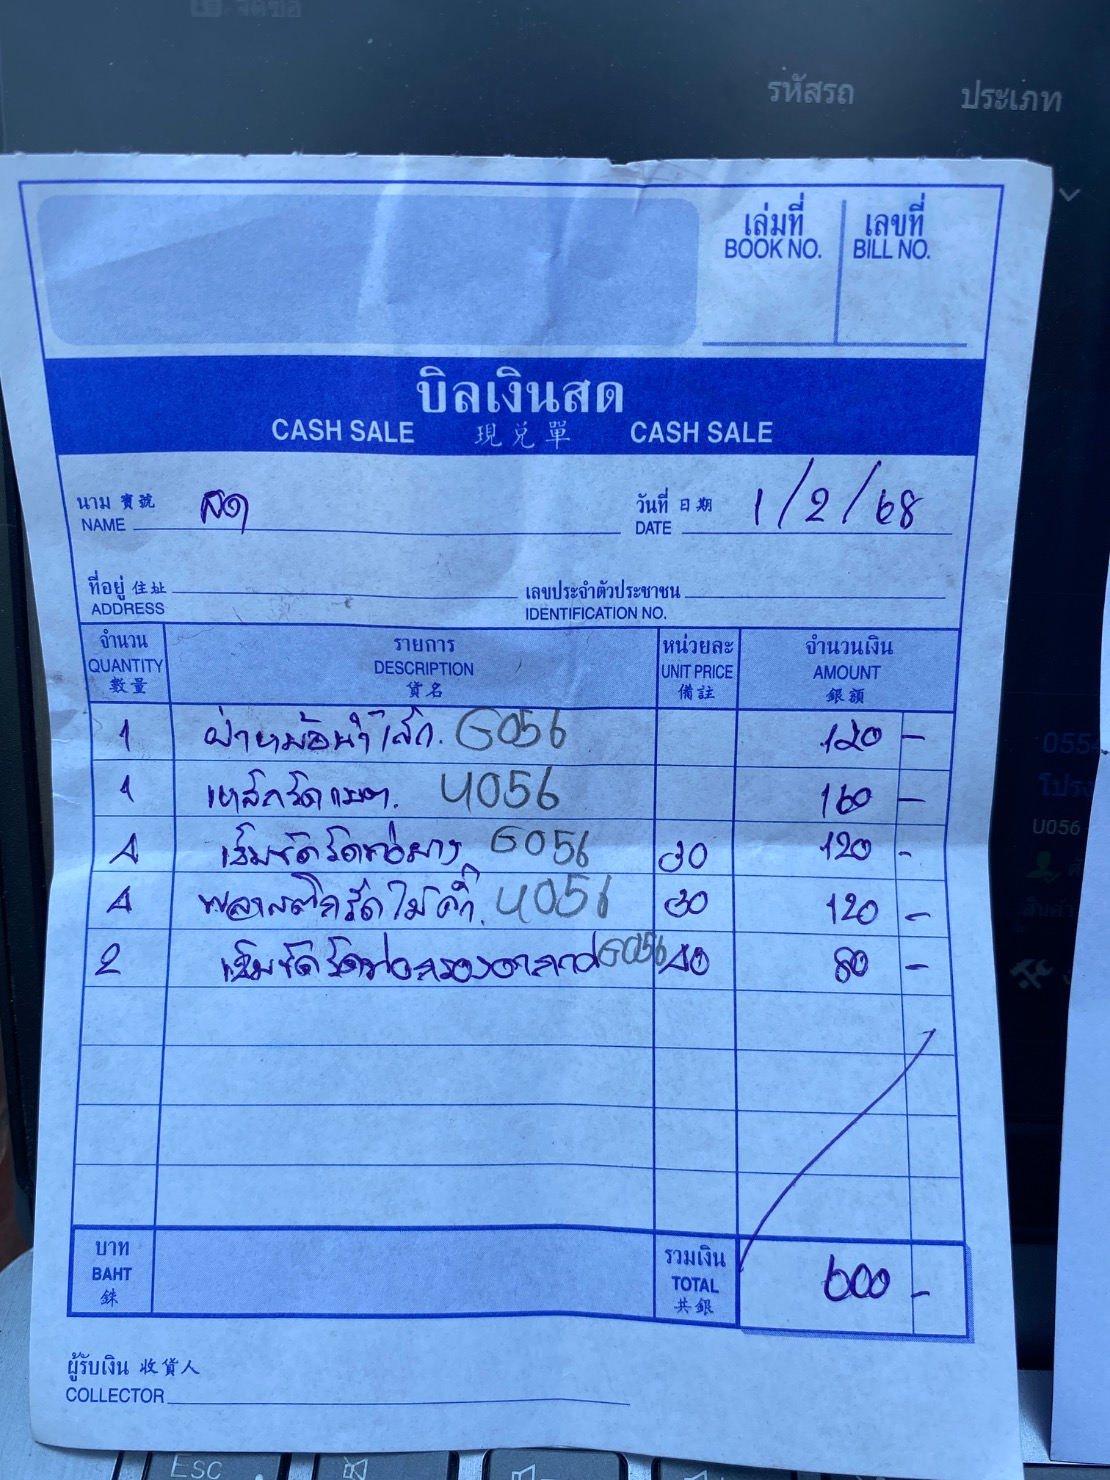 จัดซื้อ
รหัสรถ ประเภท
เล่มที่ เลขที่
BOOK NO. BILL NO.
บิลเงินสด
CASH SALE 現兌單 CASH SALE
นาม 寶號 สด วันที่ 日期 1/2/68
NAME DATE
ที่อยู่ 住址 เลขประจำตัวประชาชน
ADDRESS IDENTIFICATION NO.
จำนวน รายการ หน่วยละ จำนวนเงิน
QUANTITY DESCRIPTION UNIT PRICE AMOUNT
數量 貨名 備註 銀額
1 ฝาหม้อน้ำ G056 120 -
1 เหล็กรัดแบต. U056 160 -
4 เข็มขัดรัดท่อยาง G056 30 120 -
4 พลาสติกรัดไม้ค้ำ. U056 30 120 -
2 เข็มขัดรัดท่อกรองอากาศ G056 40 80 -
055
โปรง
U056
บาท รวมเงิน 600 -
BAHT TOTAL
銖 共銀
ผู้รับเงิน 收貨人
COLLECTOR
Esc